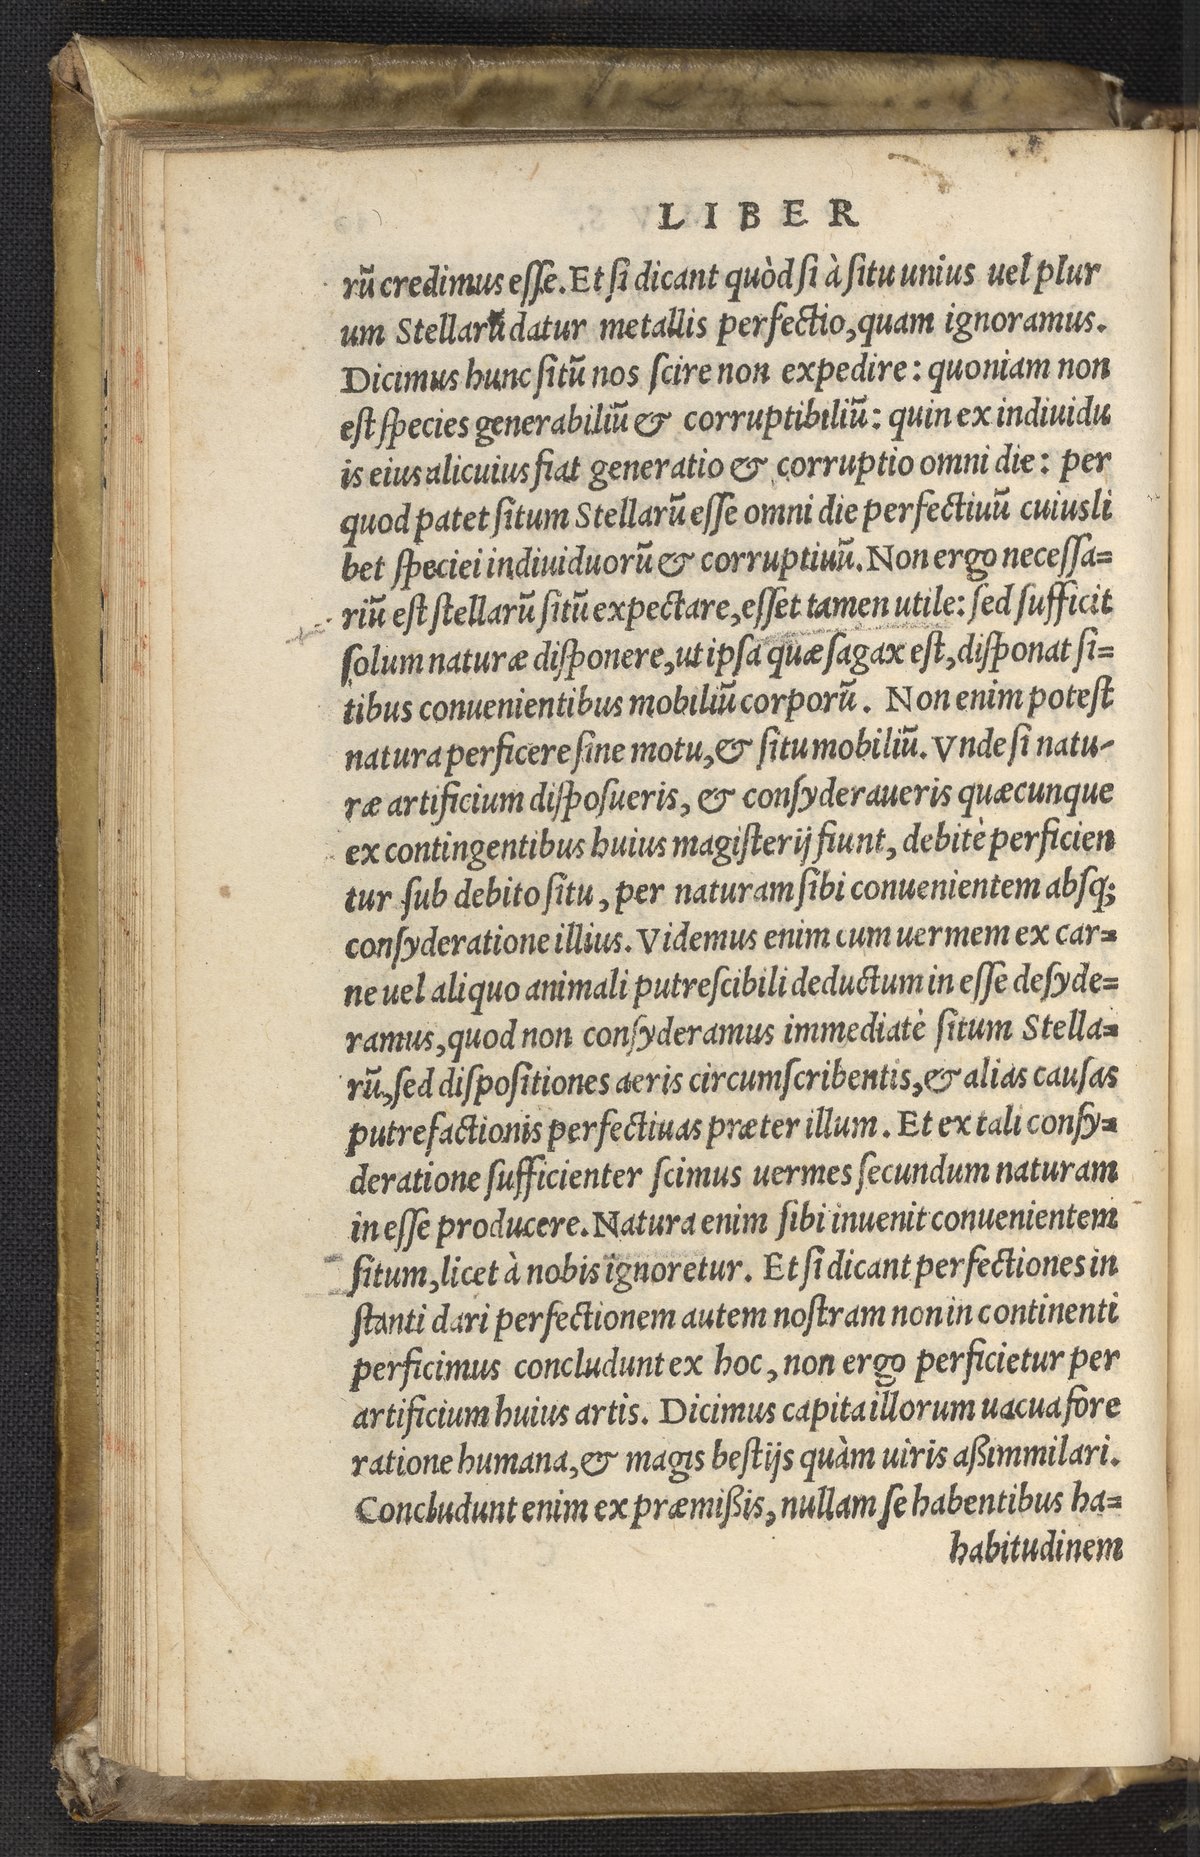 LIBER
rũ credimus eſſe. Et ſi dicant quòd ſi à ſitu unius uel plur
um Stellarũ datur metallis perfectio, quam ignoramus.
Dicimus hunc ſitũ nos ſcire non expedire: quoniam non
eſt ſpecies generabiliũ & corruptibiliũ: quin ex indiuidu
is eius alicuius fiat generatio & corruptio omni die: per
quod patet ſitum Stellarũ eſſe omni die perfectiuũ cuiusli
bet ſpeciei indiuiduorũ & corruptiuũ. Non ergo neceſſa=
riũ eſt ſtellarũ ſitũ expectare, eſſet tamen utile: ſed ſufficit
ſolum naturæ diſponere, ut ipſa quæ ſagax eſt, diſponat ſi=
tibus conuenientibus mobiliũ corporũ. Non enim poteſt
natura perficere ſine motu, & ſitu mobiliũ. Vnde ſi natu-
ræ artificium diſpoſueris, & conſyderaueris quæcunque
ex contingentibus huius magiſterij fiunt, debitè perficien
tur ſub debito ſitu, per naturam ſibi conuenientem abſq;
conſyderatione illius. Videmus enim cum uermem ex car=
ne uel aliquo animali putreſcibili deductum in eſſe deſyde=
ramus, quod non conſyderamus immediatè ſitum Stella=
rũ, ſed diſpoſitiones aeris circumſcribentis, & alias cauſas
putrefactionis perfectiuas præter illum. Et ex tali conſy=
deratione ſufficienter ſcimus uermes ſecundum naturam
in eſſe producere. Natura enim ſibi inuenit conuenientem
ſitum, licet à nobis ignoretur. Et ſi dicant perfectiones in
ſtanti dari perfectionem autem noſtram non in continenti
perficimus concludunt ex hoc, non ergo perficietur per
artificium huius artis. Dicimus capita illorum uacua fore
ratione humana, & magis beſtijs quàm uiris aßimmilari.
Concludunt enim ex præmißis, nullam ſe habentibus ha=
habitudinem